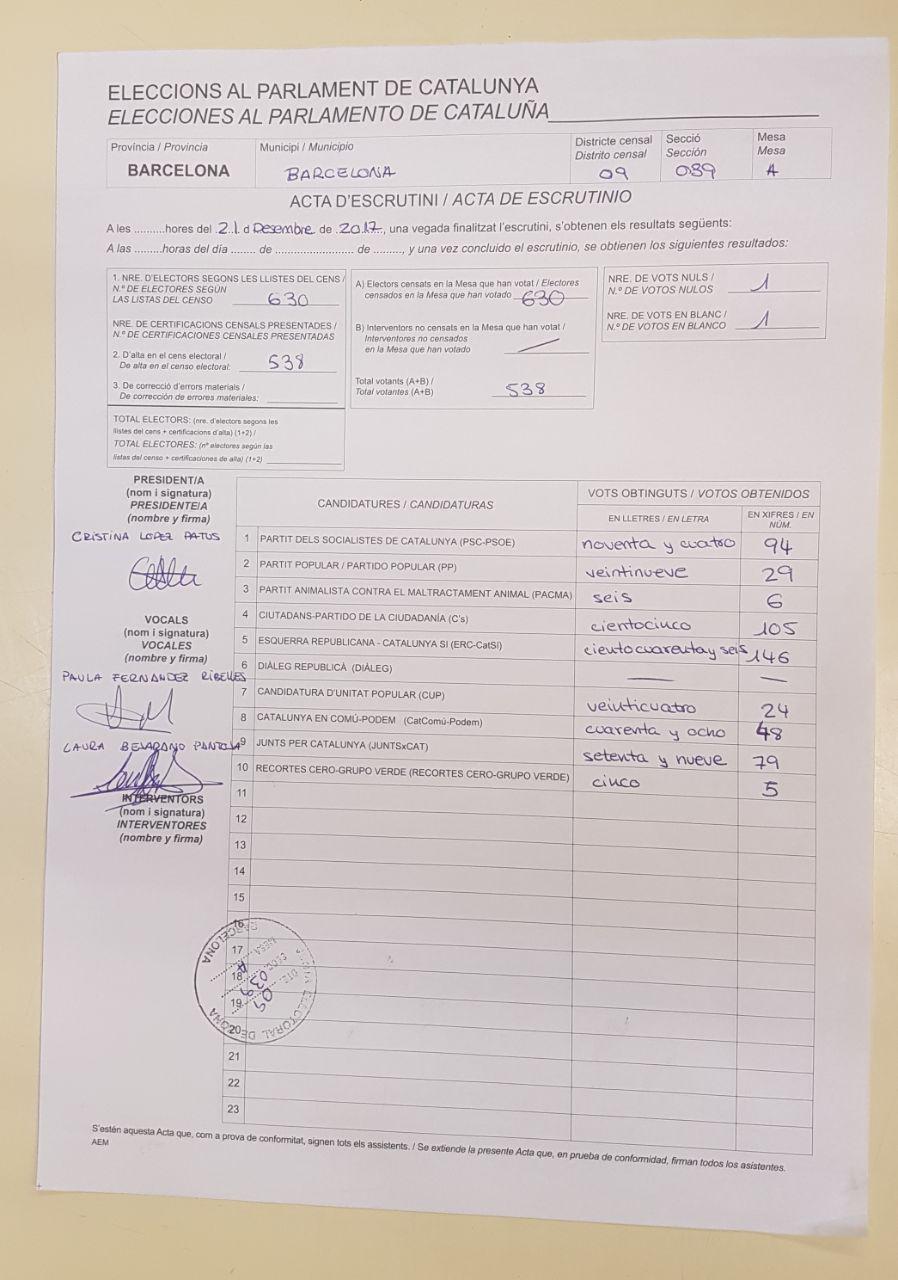 ELECCIONS AL PARLAMENT DE CATALUNYA
ELECCIONES AL PARLAMENTO DE CATALUÑA
Província / Provincia
BARCELONA
Municipi / Municipio
BARCELONA
Districte censal
Distrito censal
09
Secció
Sección
039
Mesa
Mesa
A
ACTA D'ESCRUTINI / ACTA DE ESCRUTINIO
A les ..........hores del .21. d Desembre de .2017., una vegada finalitzat l'escrutini, s'obtenen els resultats següents:
A las .........horas del día ....... de ........................ de ........., y una vez concluido el escrutinio, se obtienen los siguientes resultados:
1. NRE. D'ELECTORS SEGONS LES LLISTES DEL CENS /
N.º DE ELECTORES SEGÚN
LAS LISTAS DEL CENSO 630
NRE. DE CERTIFICACIONS CENSALS PRESENTADES /
N.º DE CERTIFICACIONES CENSALES PRESENTADAS
2. D'alta en el cens electoral /
De alta en el censo electoral: 538
3. De correcció d'errors materials /
De corrección de errores materiales:
TOTAL ELECTORS: (nre. d'electors segons les
llistes del cens + certificacions d'alta) (1+2) /
TOTAL ELECTORES: (nº electores según las
listas del censo + certificaciones de alta) (1+2)
A) Electors censats en la Mesa que han votat / Electores
censados en la Mesa que han votado 630
B) Interventors no censats en la Mesa que han votat /
Interventores no censados
en la Mesa que han votado
Total votants (A+B) /
Total votantes (A+B) 538
NRE. DE VOTS NULS /
N.º DE VOTOS NULOS 1
NRE. DE VOTS EN BLANC /
N.º DE VOTOS EN BLANCO 1
PRESIDENT/A
(nom i signatura)
PRESIDENTE/A
(nombre y firma)
CRISTINA LOPEZ PATUS
VOCALS
(nom i signatura)
VOCALES
(nombre y firma)
PAULA FERNANDEZ RIBELLES
LAURA BEJARANO PANTOJA
INTERVENTORS
(nom i signatura)
INTERVENTORES
(nombre y firma)
CANDIDATURES / CANDIDATURAS
VOTS OBTINGUTS / VOTOS OBTENIDOS
EN LLETRES / EN LETRA
EN XIFRES / EN
NÚM.
1 PARTIT DELS SOCIALISTES DE CATALUNYA (PSC-PSOE) noventa y cuatro 94
2 PARTIT POPULAR / PARTIDO POPULAR (PP) veintinueve 29
3 PARTIT ANIMALISTA CONTRA EL MALTRACTAMENT ANIMAL (PACMA) seis 6
4 CIUTADANS-PARTIDO DE LA CIUDADANÍA (C's) cientocinco 105
5 ESQUERRA REPUBLICANA - CATALUNYA SI (ERC-CatSI) cientocuarenta y seis 146
6 DIÀLEG REPUBLICÀ (DIÀLEG) — —
7 CANDIDATURA D'UNITAT POPULAR (CUP) veinticuatro 24
8 CATALUNYA EN COMÚ-PODEM (CatComú-Podem) cuarenta y ocho 48
9 JUNTS PER CATALUNYA (JUNTSxCAT) setenta y nueve 79
10 RECORTES CERO-GRUPO VERDE (RECORTES CERO-GRUPO VERDE) cinco 5
11
12
13
14
15
16
17
18
19
20
21
22
23
BARCELONA
MESA A
SECC. 039
DTE. 09
S'estén aquesta Acta que, com a prova de conformitat, signen tots els assistents. / Se extiende la presente Acta que, en prueba de conformidad, firman todos los asistentes.
AEM